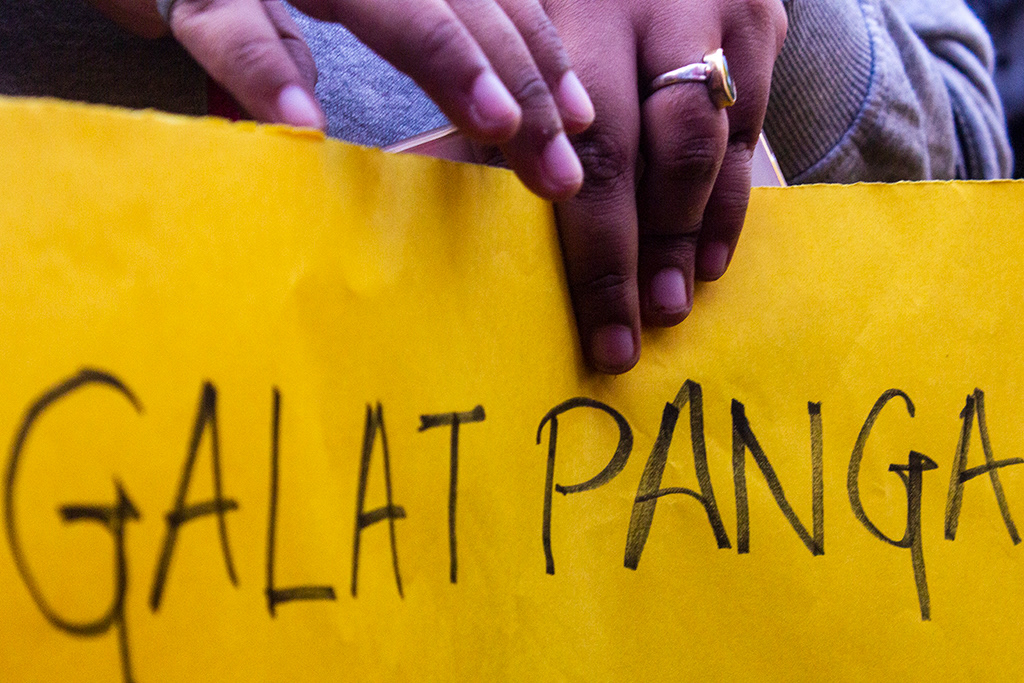 GALAT PANGA